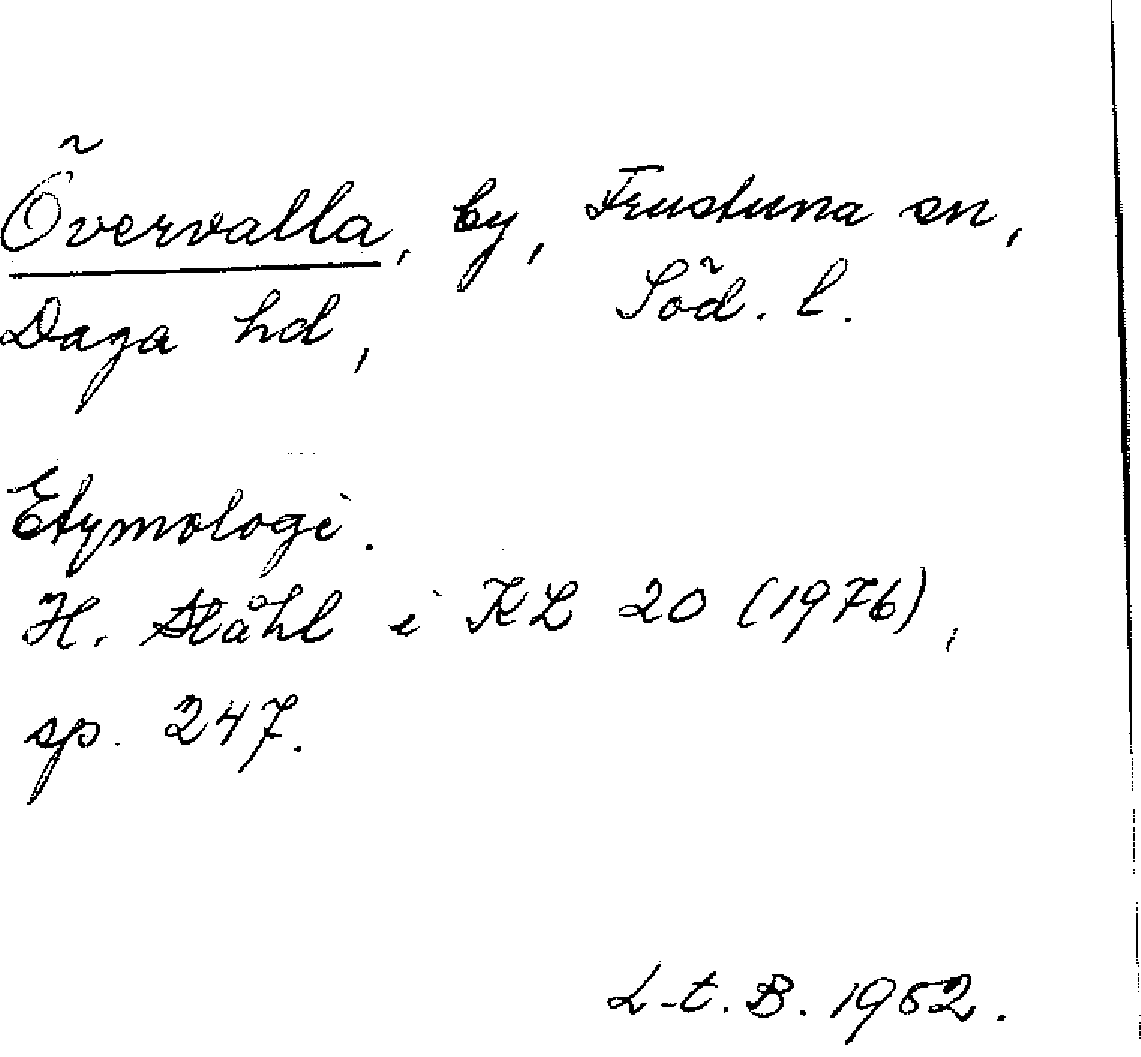 Övervalla, by, Frustuna sn,
Daga hd, Söd. l.
Etymologi.
H. Ståhl i KL 20 (1976),
sp. 247.
L-t. B. 1982.